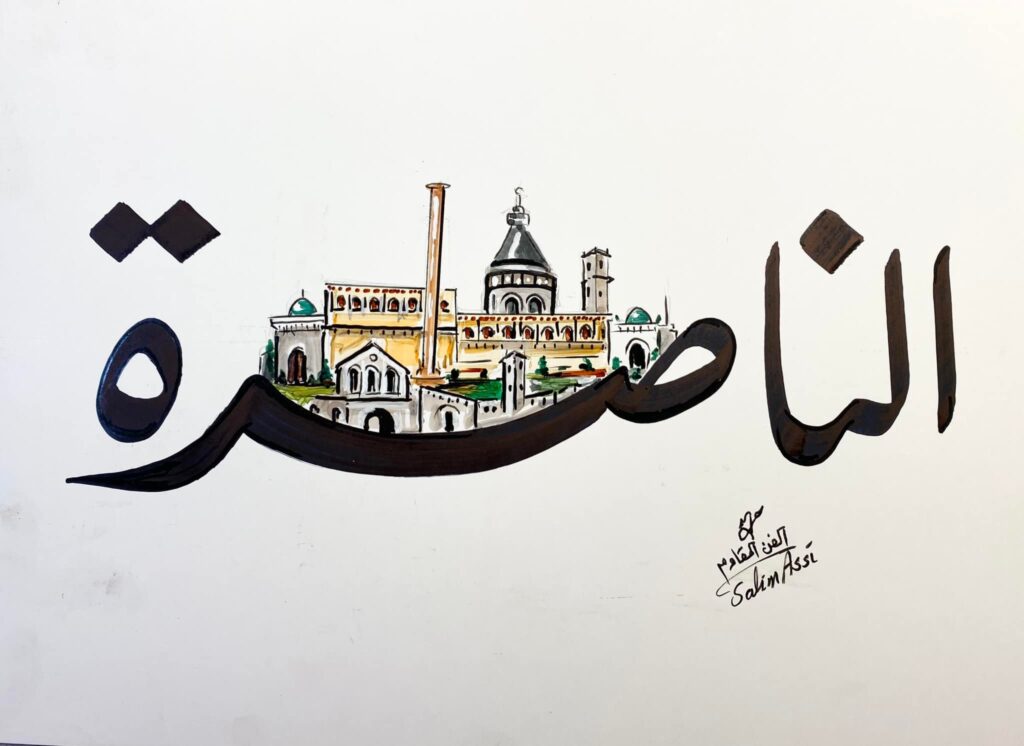 الناصرة
الفن المقاوم
Salim Assi